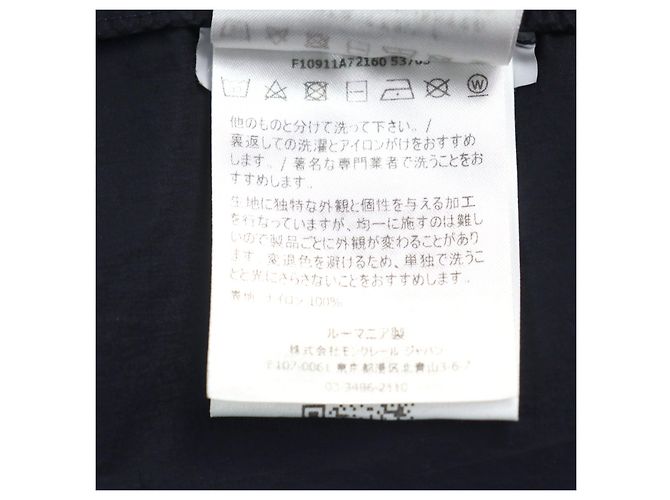 F10911A72160 537
W
他のものと分けて洗って下さい。/
裏返しての洗濯とアイロンがけをおすすめ
します。/ 著名な専門業者で洗うことをお
すすめします。
生地に独特な外観と個性を与える加工
を行なっていますが、均一に施すのは難し
いので製品ごとに外観が変わることがあり
ます。変退色を避けるため、単独で洗うこ
とと光にさらさないことをおすすめします。
表地: ナイロン 100%
ルーマニア製
株式会社モンクレール ジャパン
〒107-0061 東京都港区北青山3-6-7
03-3486-2110